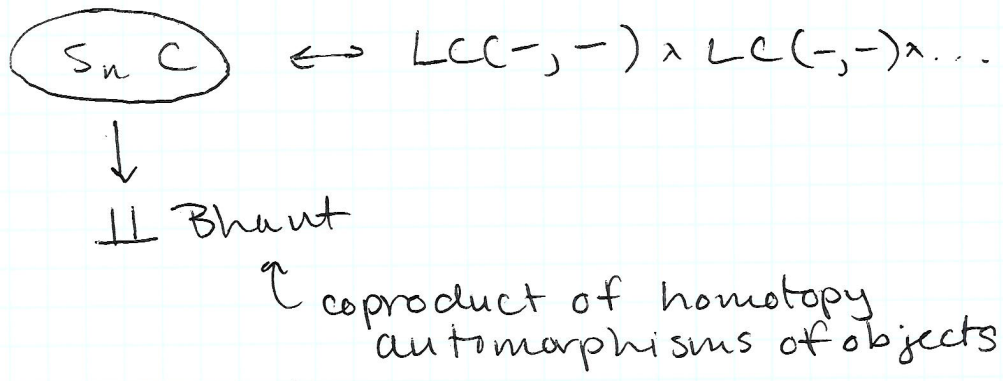 Sₙ C ↔ LC(-,-) × LC(-,-) × ...
↓
∐ Bhaut
↑ coproduct of homotopy
automorphisms of objects